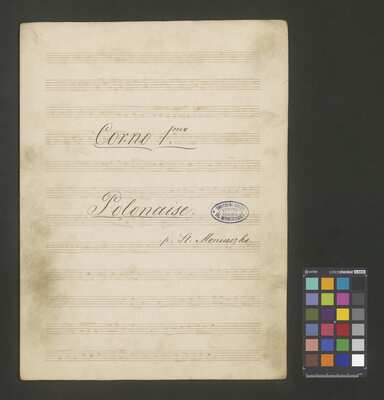 Corno 1mo
Polonaise.
p. St. Moniuszko